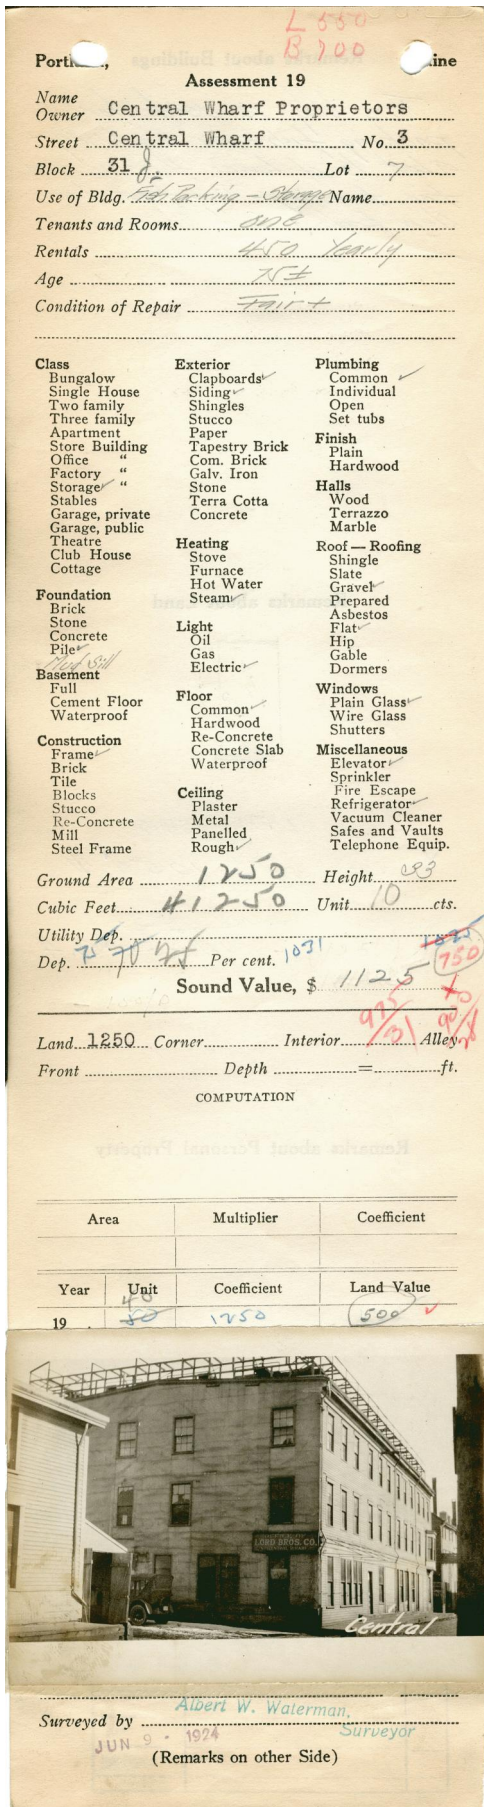 L 550
B 700
Portl , ine
Assessment 19
Name
Owner Central Wharf Proprietors
Street Central Wharf No. 3
Block 31 J. Lot 7
Use of Bldg. Fish Packing - Storage Name
Tenants and Rooms one
Rentals 450 Yearly
Age 75±
Condition of Repair Fair +
Class
Bungalow
Single House
Two family
Three family
Apartment
Store Building
Office "
Factory "
Storage✓ "
Stables
Garage, private
Garage, public
Theatre
Club House
Cottage
Foundation
Brick
Stone
Concrete
Pile✓
Mud Sill
Basement
Full
Cement Floor
Waterproof
Construction
Frame✓
Brick
Tile
Blocks
Stucco
Re-Concrete
Mill
Steel Frame
Exterior
Clapboards✓
Siding✓
Shingles
Stucco
Paper
Tapestry Brick
Com. Brick
Galv. Iron
Stone
Terra Cotta
Concrete
Heating
Stove
Furnace
Hot Water
Steam✓
Light
Oil
Gas
Electric✓
Floor
Common✓
Hardwood
Re-Concrete
Concrete Slab
Waterproof
Ceiling
Plaster
Metal
Panelled
Rough✓
Plumbing
Common ✓
Individual
Open
Set tubs
Finish
Plain
Hardwood
Halls
Wood
Terrazzo
Marble
Roof — Roofing
Shingle
Slate
Gravel✓
Prepared
Asbestos
Flat✓
Hip
Gable
Dormers
Windows
Plain Glass✓
Wire Glass
Shutters
Miscellaneous
Elevator✓
Sprinkler
Fire Escape
Refrigerator✓
Vacuum Cleaner
Safes and Vaults
Telephone Equip.
Ground Area 1250 Height 33
Cubic Feet 41250 Unit 10 cts.
Utility Dep.
Dep. 75 70 75 Per cent. 1031 750
Sound Value, $ 1125
975/31
Land 1250 Corner Interior Alley
Front Depth = ft.
COMPUTATION
Area Multiplier Coefficient
Year Unit Coefficient Land Value
40
19 . 50 1250 500 ✓
LORD BROS. CO.
Central
Albert W. Waterman,
Surveyed by Surveyor
JUN 9 - 1924
(Remarks on other Side)